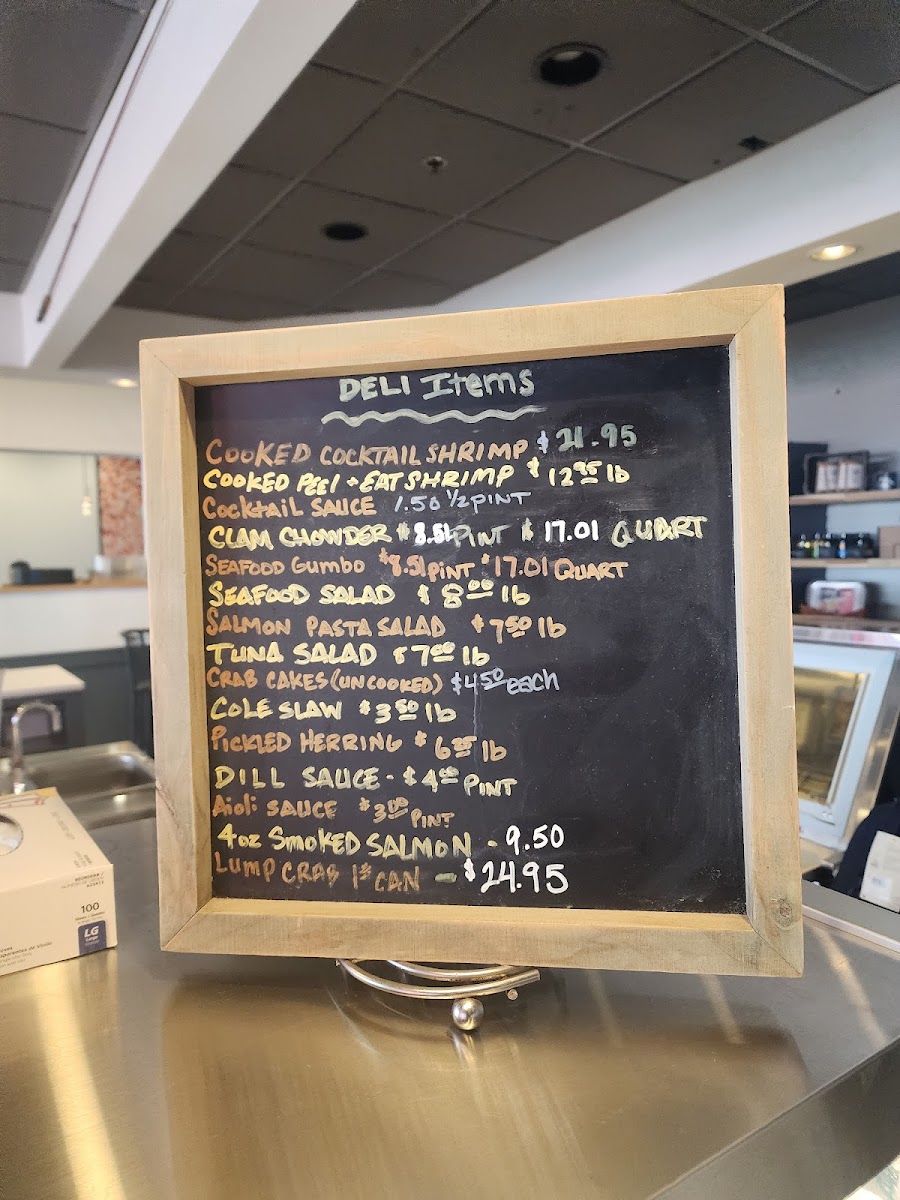 DELI Items
COOKED COCKTAIL SHRIMP $ 21.95
COOKED PEEl + EAT SHRIMP $ 12.95 lb
Cocktail SAUCE 1.50 1/2 PINT
CLAM CHOWDER $8.51 PINT $ 17.01 QUART
SEAFOOD GUMBO $8.51 PINT $17.01 QUART
SEAFOOD SALAD $ 8.00 lb
SALMON PASTA SALAD $7.50 lb
TUNA SALAD $7.00 lb
CRAB CAKES (UNCOOKED) $4.50 each
COLE SLAW $3.50 lb
PICKLED HERRING $ lb
DILL SAUCE - $4.00 PINT
Aioli SAUCE $3.00 PINT
4oz SMOKED SALMON - 9.50
LUMP CRAB 1# CAN - $24.95
100
LG
Large